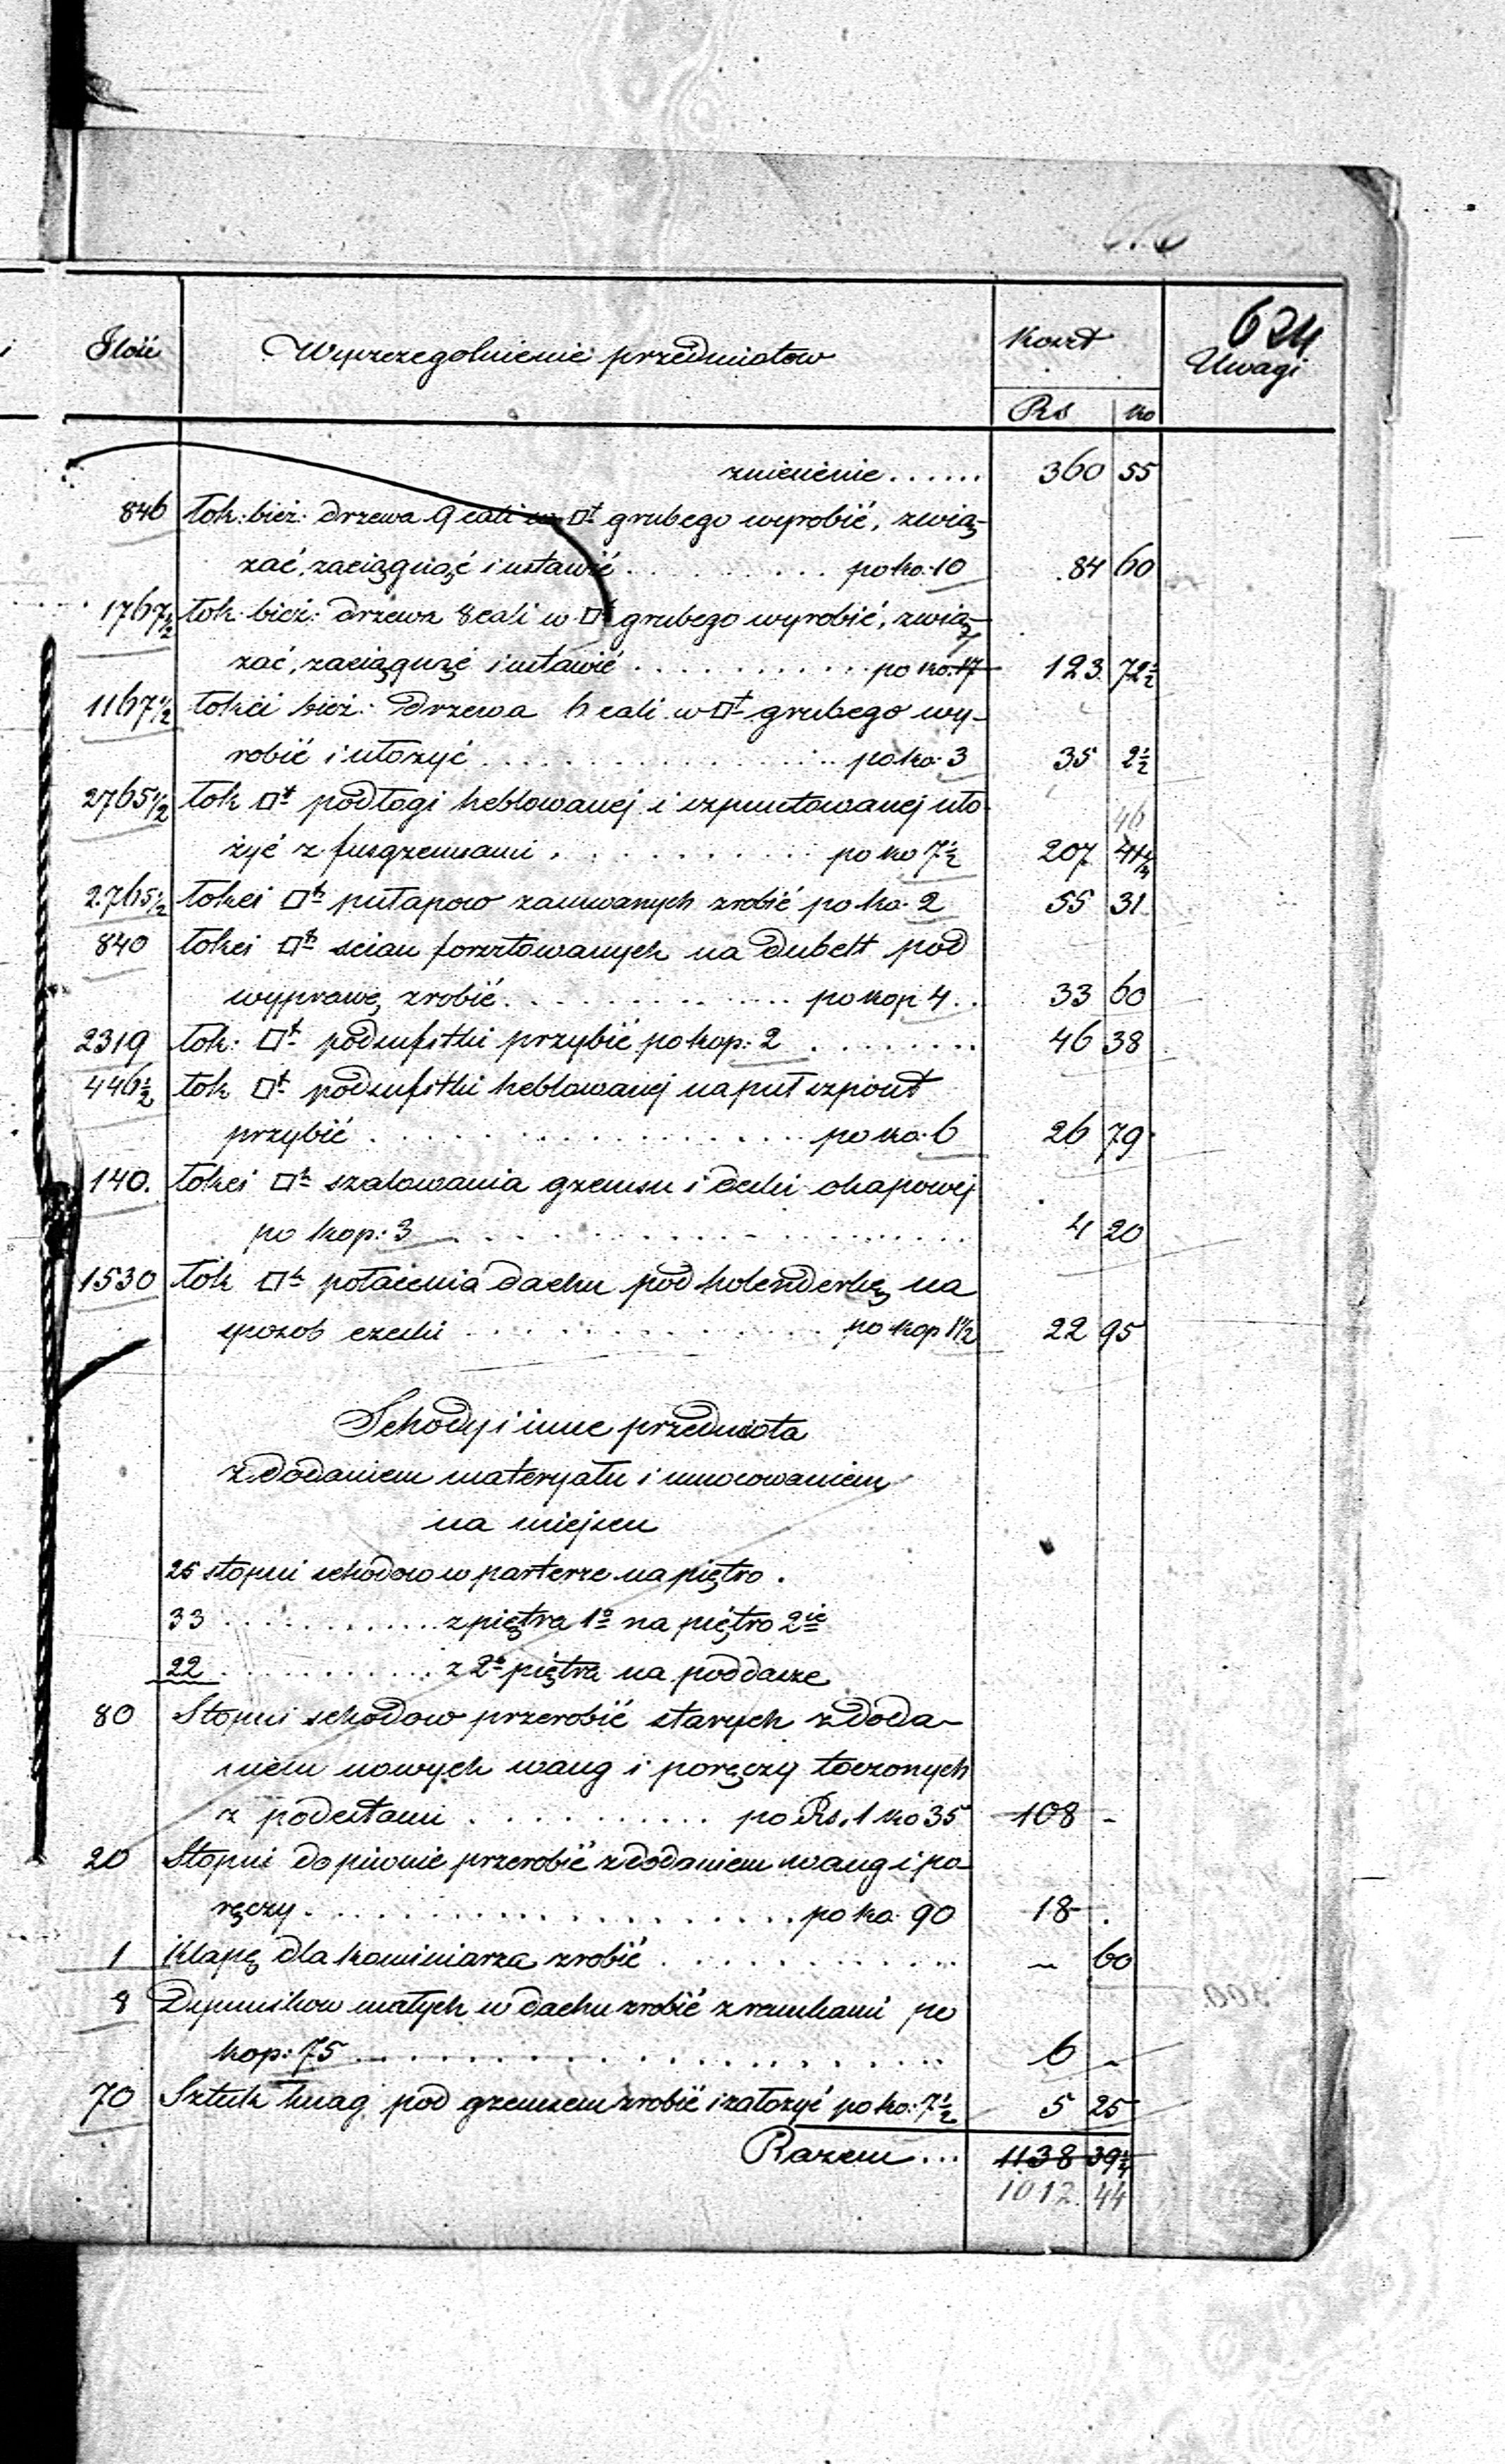 624
Ilość Wyszczegolnienie przedmiotow Koszt Uwagi
Rs ko
zniesienie...... 360 55
846 łok: bież: drzewa 9 cali w □t grubego wyrobić, zwią-
zać, zaciągnąć i ustawić . . . . . . . . . po ko: 10 84 60
1767½ łok. bież: drzewa 8 cali w □t grubego wyrobić, zwią-
zać, zaciągnąć i ustawić . . . . . . . . . . . po ko: 17 7 123 72½
1167½ łokci bież: drzewa 6 cali w □t grubego wy-
robić i ułożyć . . . . . . . . . . . . . . . . po ko: 3 35 2½
2765½ łok □t podłogi heblowanej i szpuntowanej uło-
46
żyć z fusgzemsami . . . . . . . . . . . po ko 7½ 207 41¼
2765½ łokci □h pułapow zasuwanych zrobić po ko. 2 55 31
840 łokci □h scian forsztowanych na dubelt pod
wyprawę zrobić . . . . . . . . . . . . . po kop 4 . . 33 60
2319 łok: □t podsufitki przybić po kop: 2 . . . . . . . . 46 38
446½ łok □t podsufitki heblowanej na puł szpont
przybić . . . . . . . . . . . . . . . . . . po ko: 6 26 79
140. łokci □h szalowania gzemsu i deski okapowej
po kop: 3 . . . . . . . . . . . . . . . . . . . . 4 20
1530 łok □h połacenia dachu pod holenderkę na
sposob czeski . . . . . . . . . . . . . . . po kop 1½ 22 95
Schody i inne przedmiota
z dodaniem materyału i umocowaniem
na miejscu
25 stopni schodow w parterze na piętro .
33 . . . . . . . . . . . . z piętra 1o na piętro 2ie
22 . . . . . . . . . . . . z 2o piętra na poddasze
80 Stopni schodow przerobić starych z doda-
niem nowych wang i poręczy toczonych
z podestami . . . . . . . . . . po Rs. 1 ko 35 108 -
20 Stopni do piwnic przerobić z dodaniem wang i po-
ręczy . . . . . . . . . . . . . . . . . . . . po ko. 90 18 .
1 Klapę dla kominiarza zrobić . . . . . . . . . . . . ~ 60
8 Dymnikow małych w dachu zrobić z ramkami po
kop: 75 . . . . . . . . . . . . . . . . . . . . . . 6 ~
70 Sztuk knag pod gzemsem zrobić i założyć po ko: 7½ 5 25
Razem . . . 1138 39¼
1012. 44